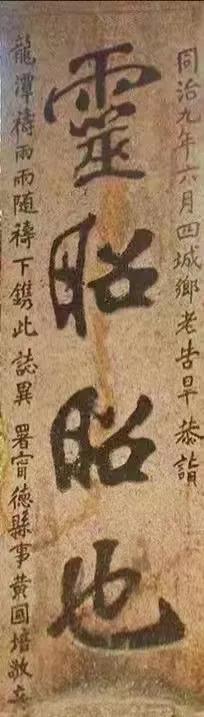 同治九年六月四城鄉老告旱恭詣
靈昭昭也
龍潭禱雨雨隨禱下鐫此誌異 署甯德縣事黃圖培敬立